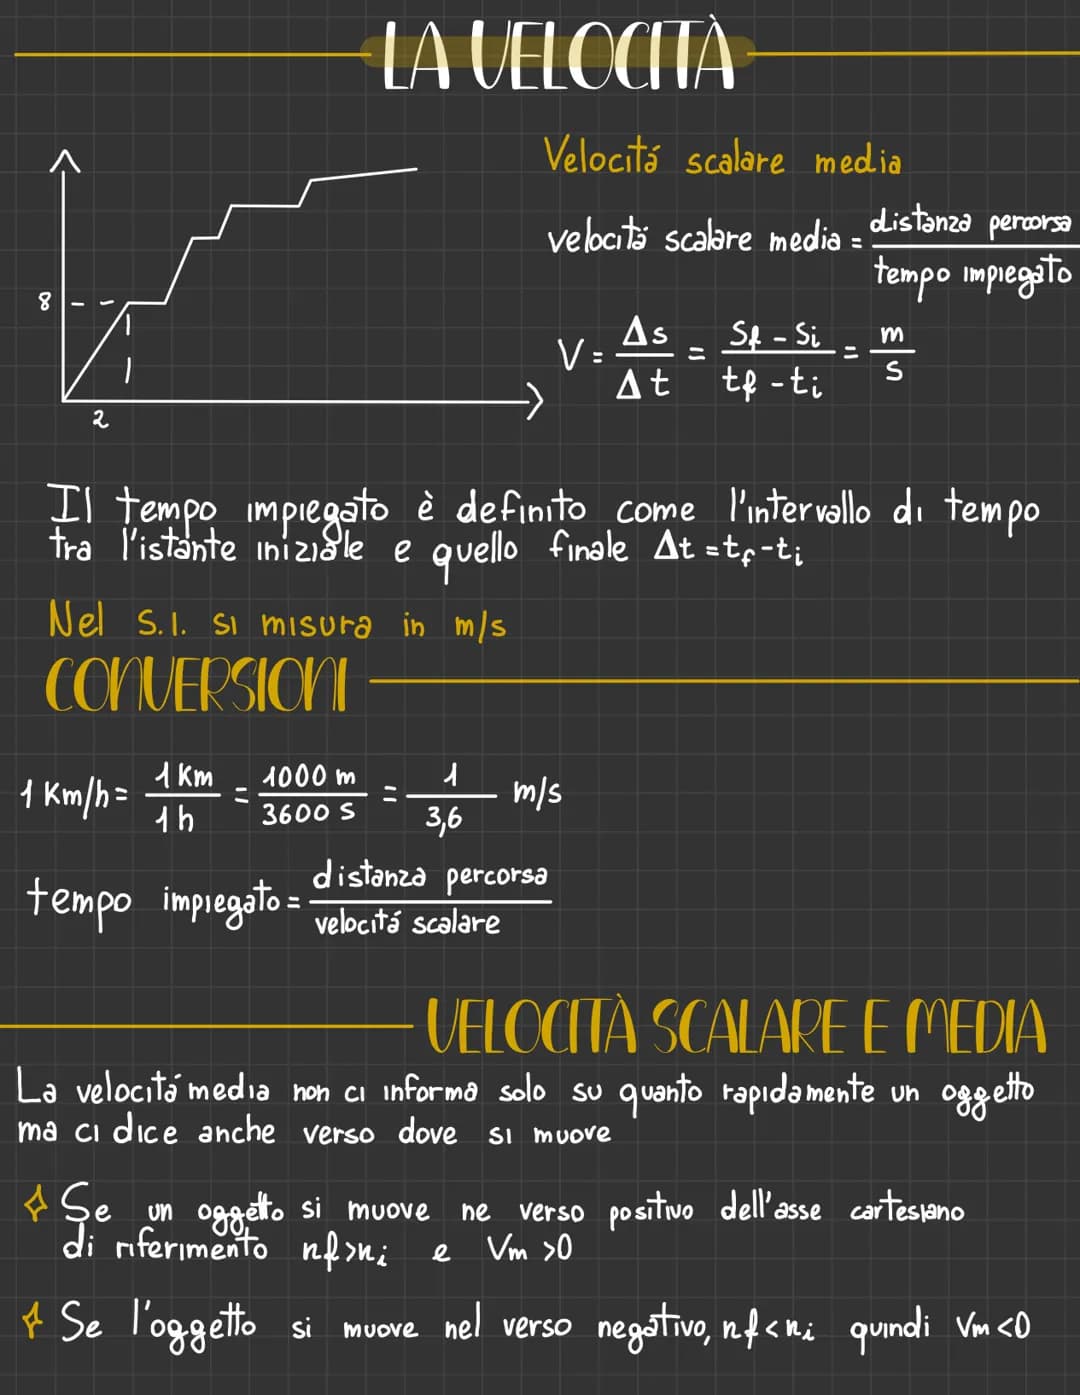 LA VELOCITÀ
Velocitá scalare media
velocitá scalare media = distanza percorsa / tempo impiegato
8
2
V = Δs / Δt = Sf - Si / tf - ti = m / s
Il tempo impiegato è definito come l'intervallo di tempo
tra l'istante iniziale e quello finale Δt = tf - ti
Nel S.I. si misura in m/s
CONVERSIONI
1 Km/h = 1 Km / 1 h = 1000 m / 3600 s = 1 / 3,6 m/s
tempo impiegato = distanza percorsa / velocitá scalare
VELOCITÀ SCALARE E MEDIA
La velocitá media non ci informa solo su quanto rapidamente un oggetto
ma ci dice anche verso dove si muove
Se un oggetto si muove ne verso positivo dell'asse cartesiano
di riferimento nf > ni e Vm > 0
Se l'oggetto si muove nel verso negativo, nf < ni quindi Vm < 0